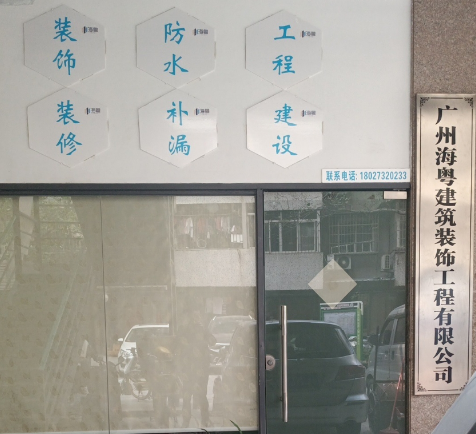 装饰
防水
工程
装修
补漏
建设
联系电话: 18027320233
广州海粤建筑装饰工程有限公司